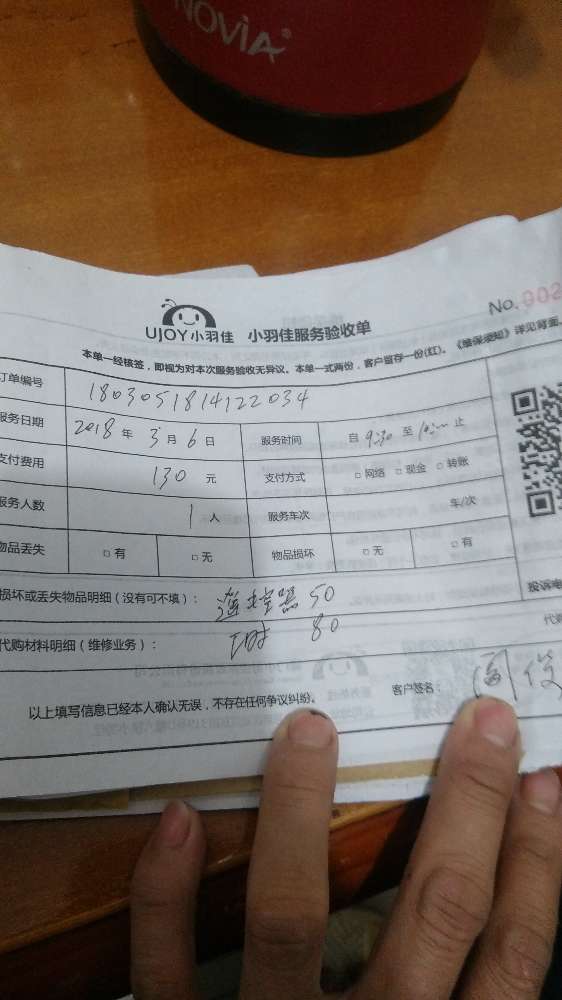 NOVIA®
No.002
UJOY小羽佳 小羽佳服务验收单
本单一经核签，即视为对本次服务验收无异议。本单一式两份，客户留存一份(红)。《维保须知》详见背面。
订单编号 1803051814122034
服务日期 2018 年 3 月 6 日 服务时间 自 9:30 至 10:00 止
支付费用 130 元 支付方式 □ 网络 □ 现金 □ 转账
服务人数 1 人 服务车次 车/次
物品丢失 □ 有 □ 无 物品损坏 □ 无 □ 有
损坏或丢失物品明细（没有可不填）： 遥控器 50 投诉电
代购材料明细（维修业务）： 工时 80 代购
以上填写信息已经本人确认无误，不存在任何争议纠纷。 客户签名：